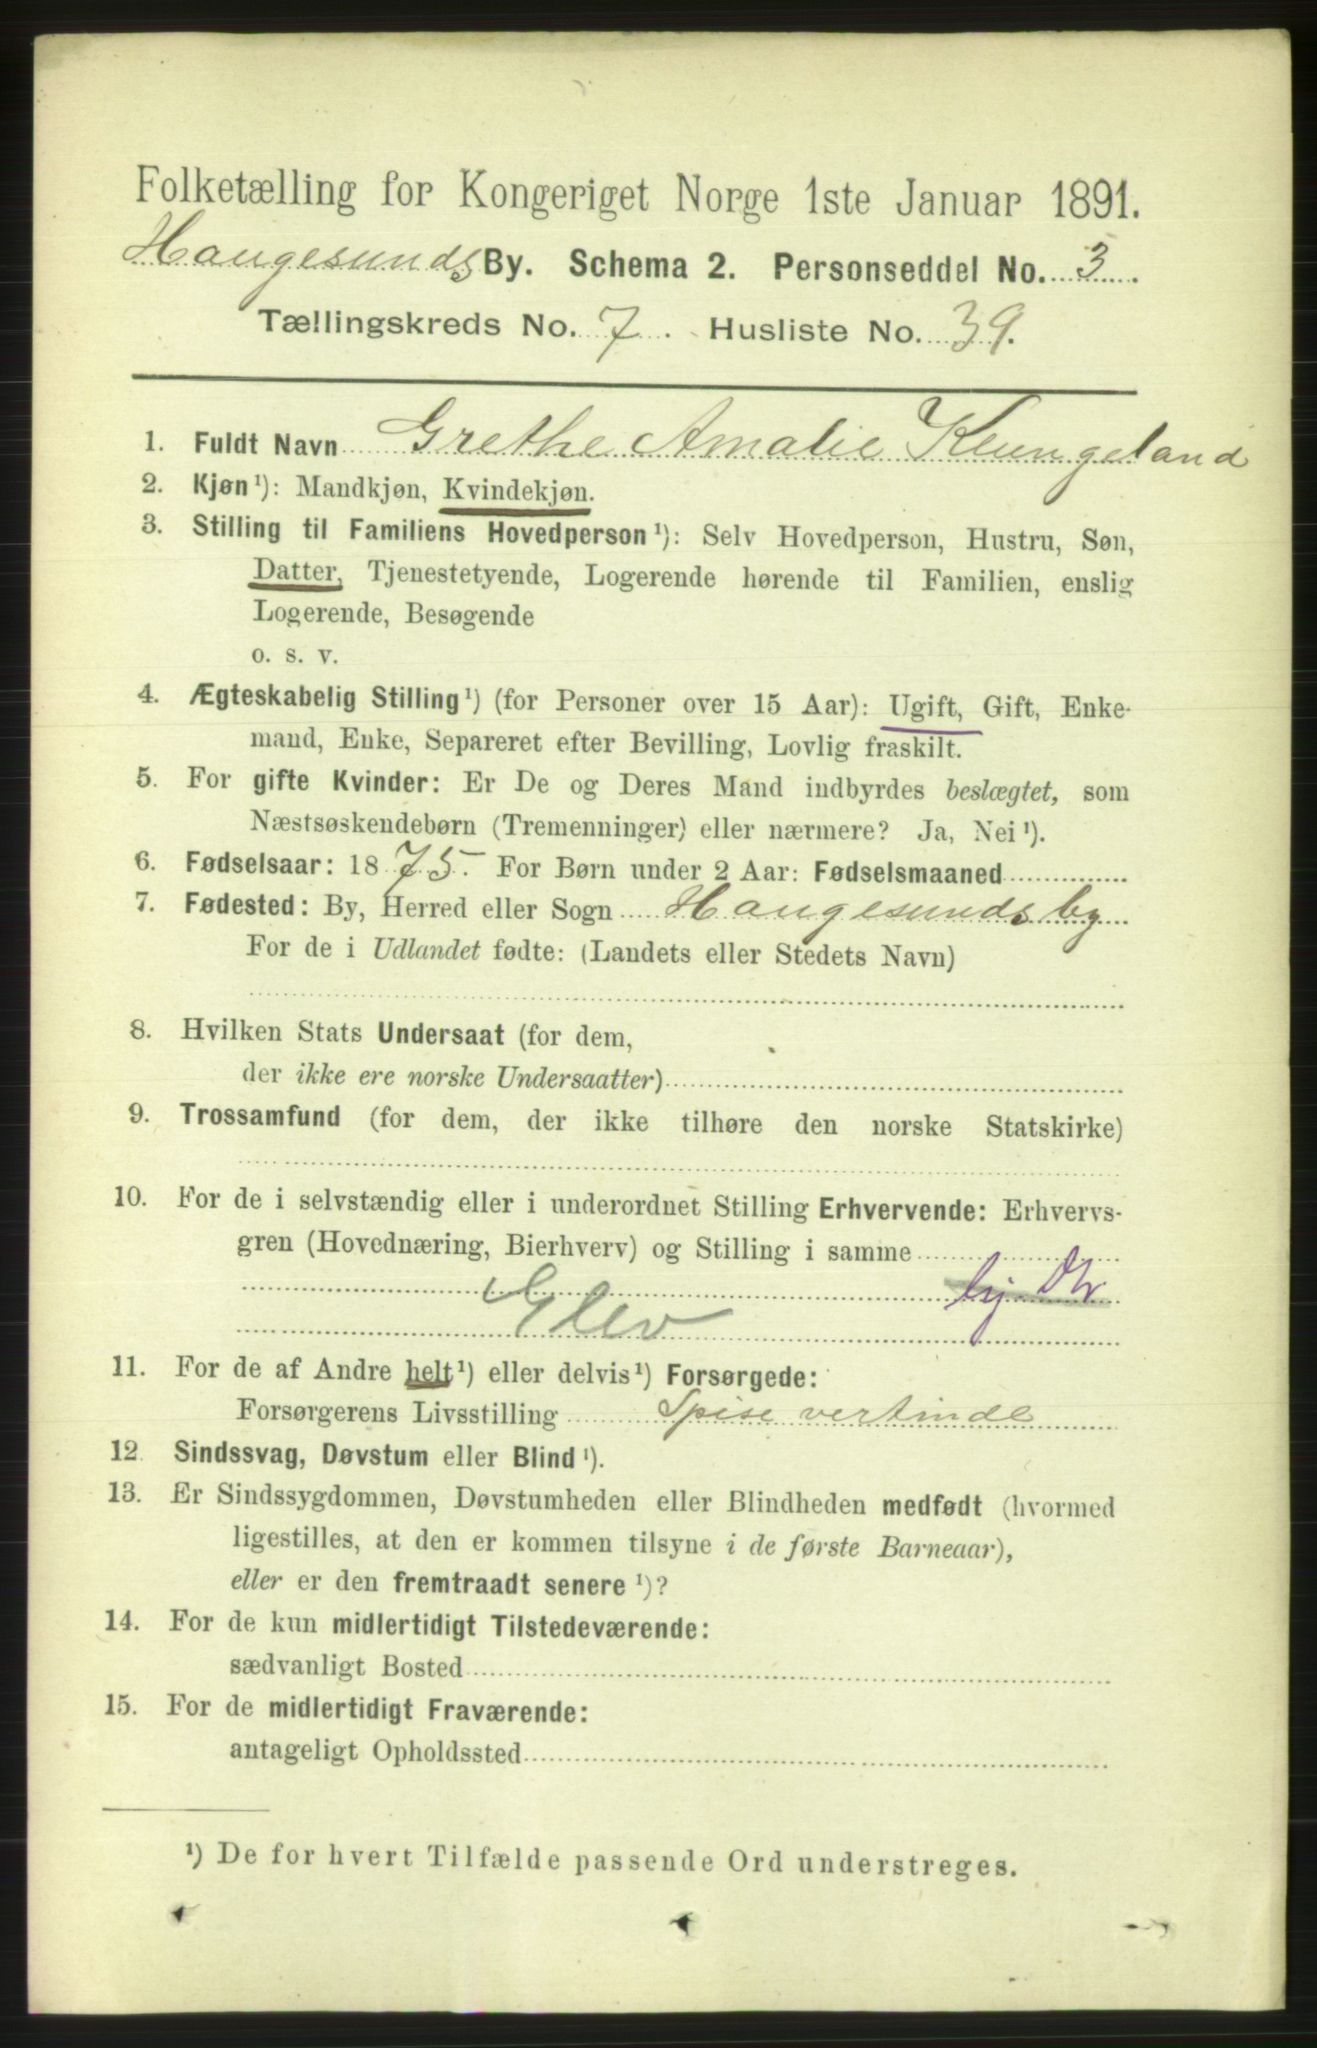 Folketælling for Kongeriget Norge 1ste Januar 1891.
Haugesunds By. Schema 2. Personseddel No. 3.
Tællingskreds No. 7. Husliste No. 39.
1. Fuldt Navn Grethe Amalie
2. Kjøn¹): Mandkjøn, Kvindekjøn.
3. Stilling til Familiens Hovedperson¹): Selv Hovedperson, Hustru, Søn,
Datter, Tjenestetyende, Logerende hørende til Familien, enslig
Logerende, Besøgende
o. s. v.
4. Ægteskabelig Stilling¹) (for Personer over 15 Aar): Ugift, Gift, Enke-
mand, Enke, Separeret efter Bevilling, Lovlig fraskilt.
5. For gifte Kvinder: Er De og Deres Mand indbyrdes beslægtet, som
Næstsøskendebørn (Tremenninger) eller nærmere? Ja, Nei¹).
6. Fødselsaar: 1875. For Børn under 2 Aar: Fødselsmaaned
7. Fødested: By, Herred eller Sogn Haugesunds by
For de i Udlandet fødte: (Landets eller Stedets Navn)
8. Hvilken Stats Undersaat (for dem,
der ikke ere norske Undersaatter)
9. Trossamfund (for dem, der ikke tilhøre den norske Statskirke)
10. For de i selvstændig eller i underordnet Stilling Erhvervende: Erhvervs-
gren (Hovednæring, Bierhverv) og Stilling i samme
Elev
11. For de af Andre helt¹) eller delvis¹) Forsørgede:
Forsørgerens Livsstilling Spise vertinde
12. Sindssvag, Døvstum eller Blind¹).
13. Er Sindssygdommen, Døvstumheden eller Blindheden medfødt (hvormed
ligestilles, at den er kommen tilsyne i de første Barneaar),
eller er den fremtraadt senere¹)?
14. For de kun midlertidigt Tilstedeværende:
sædvanligt Bosted
15. For de midlertidigt Fraværende:
antageligt Opholdssted
¹) De for hvert Tilfælde passende Ord understreges.